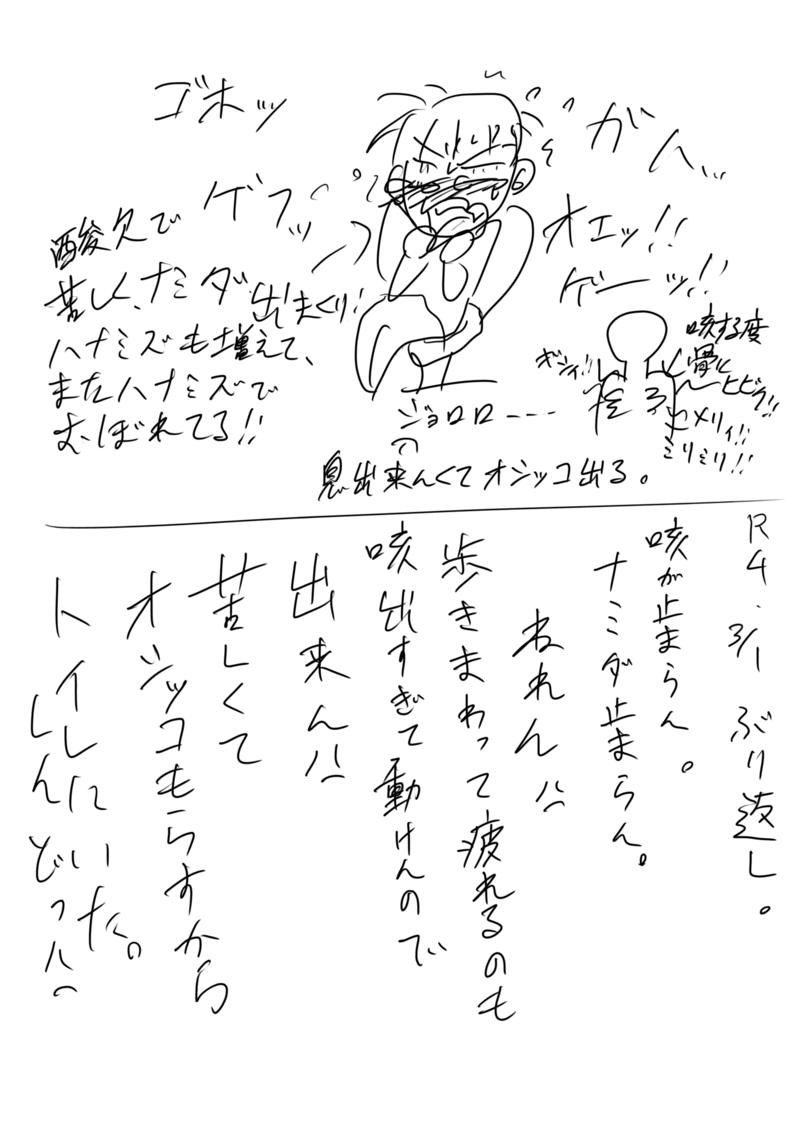 ゴホッ
ゲフッ
ガハッ
オエッ!!
ゲーッ!!
酸欠で
苦しく、ナミダ出まくり!
ハナミズも増えて、
またハナミズで
おぼれてる!!
咳する度
骨に
ヒビラ!!
ギシィ!!
メリィ!!
ミリミリ!!
ジョロロ---
息出来んくてオシッコ出る。
R4.3/1 ぶり返し。
咳が止まらん。
ナミダ止まらん。
ねれん!!
歩きまわって疲れるのも
咳出すぎて動けんので
出来ん!!
苦しくて
オシッコもらすから
トイレにいた。
しんどっ!!